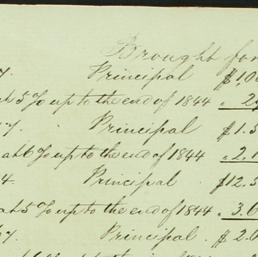 Brought for
7. Principal $1,0
at 5 % up to the end of 1844 . 2
7. Principal $1.3
at 6 % up to the end of 1844 . 2.1
4. Principal $12.5
at 5 % up to the end of 1844 . 3.6
7. Principal . $2.6